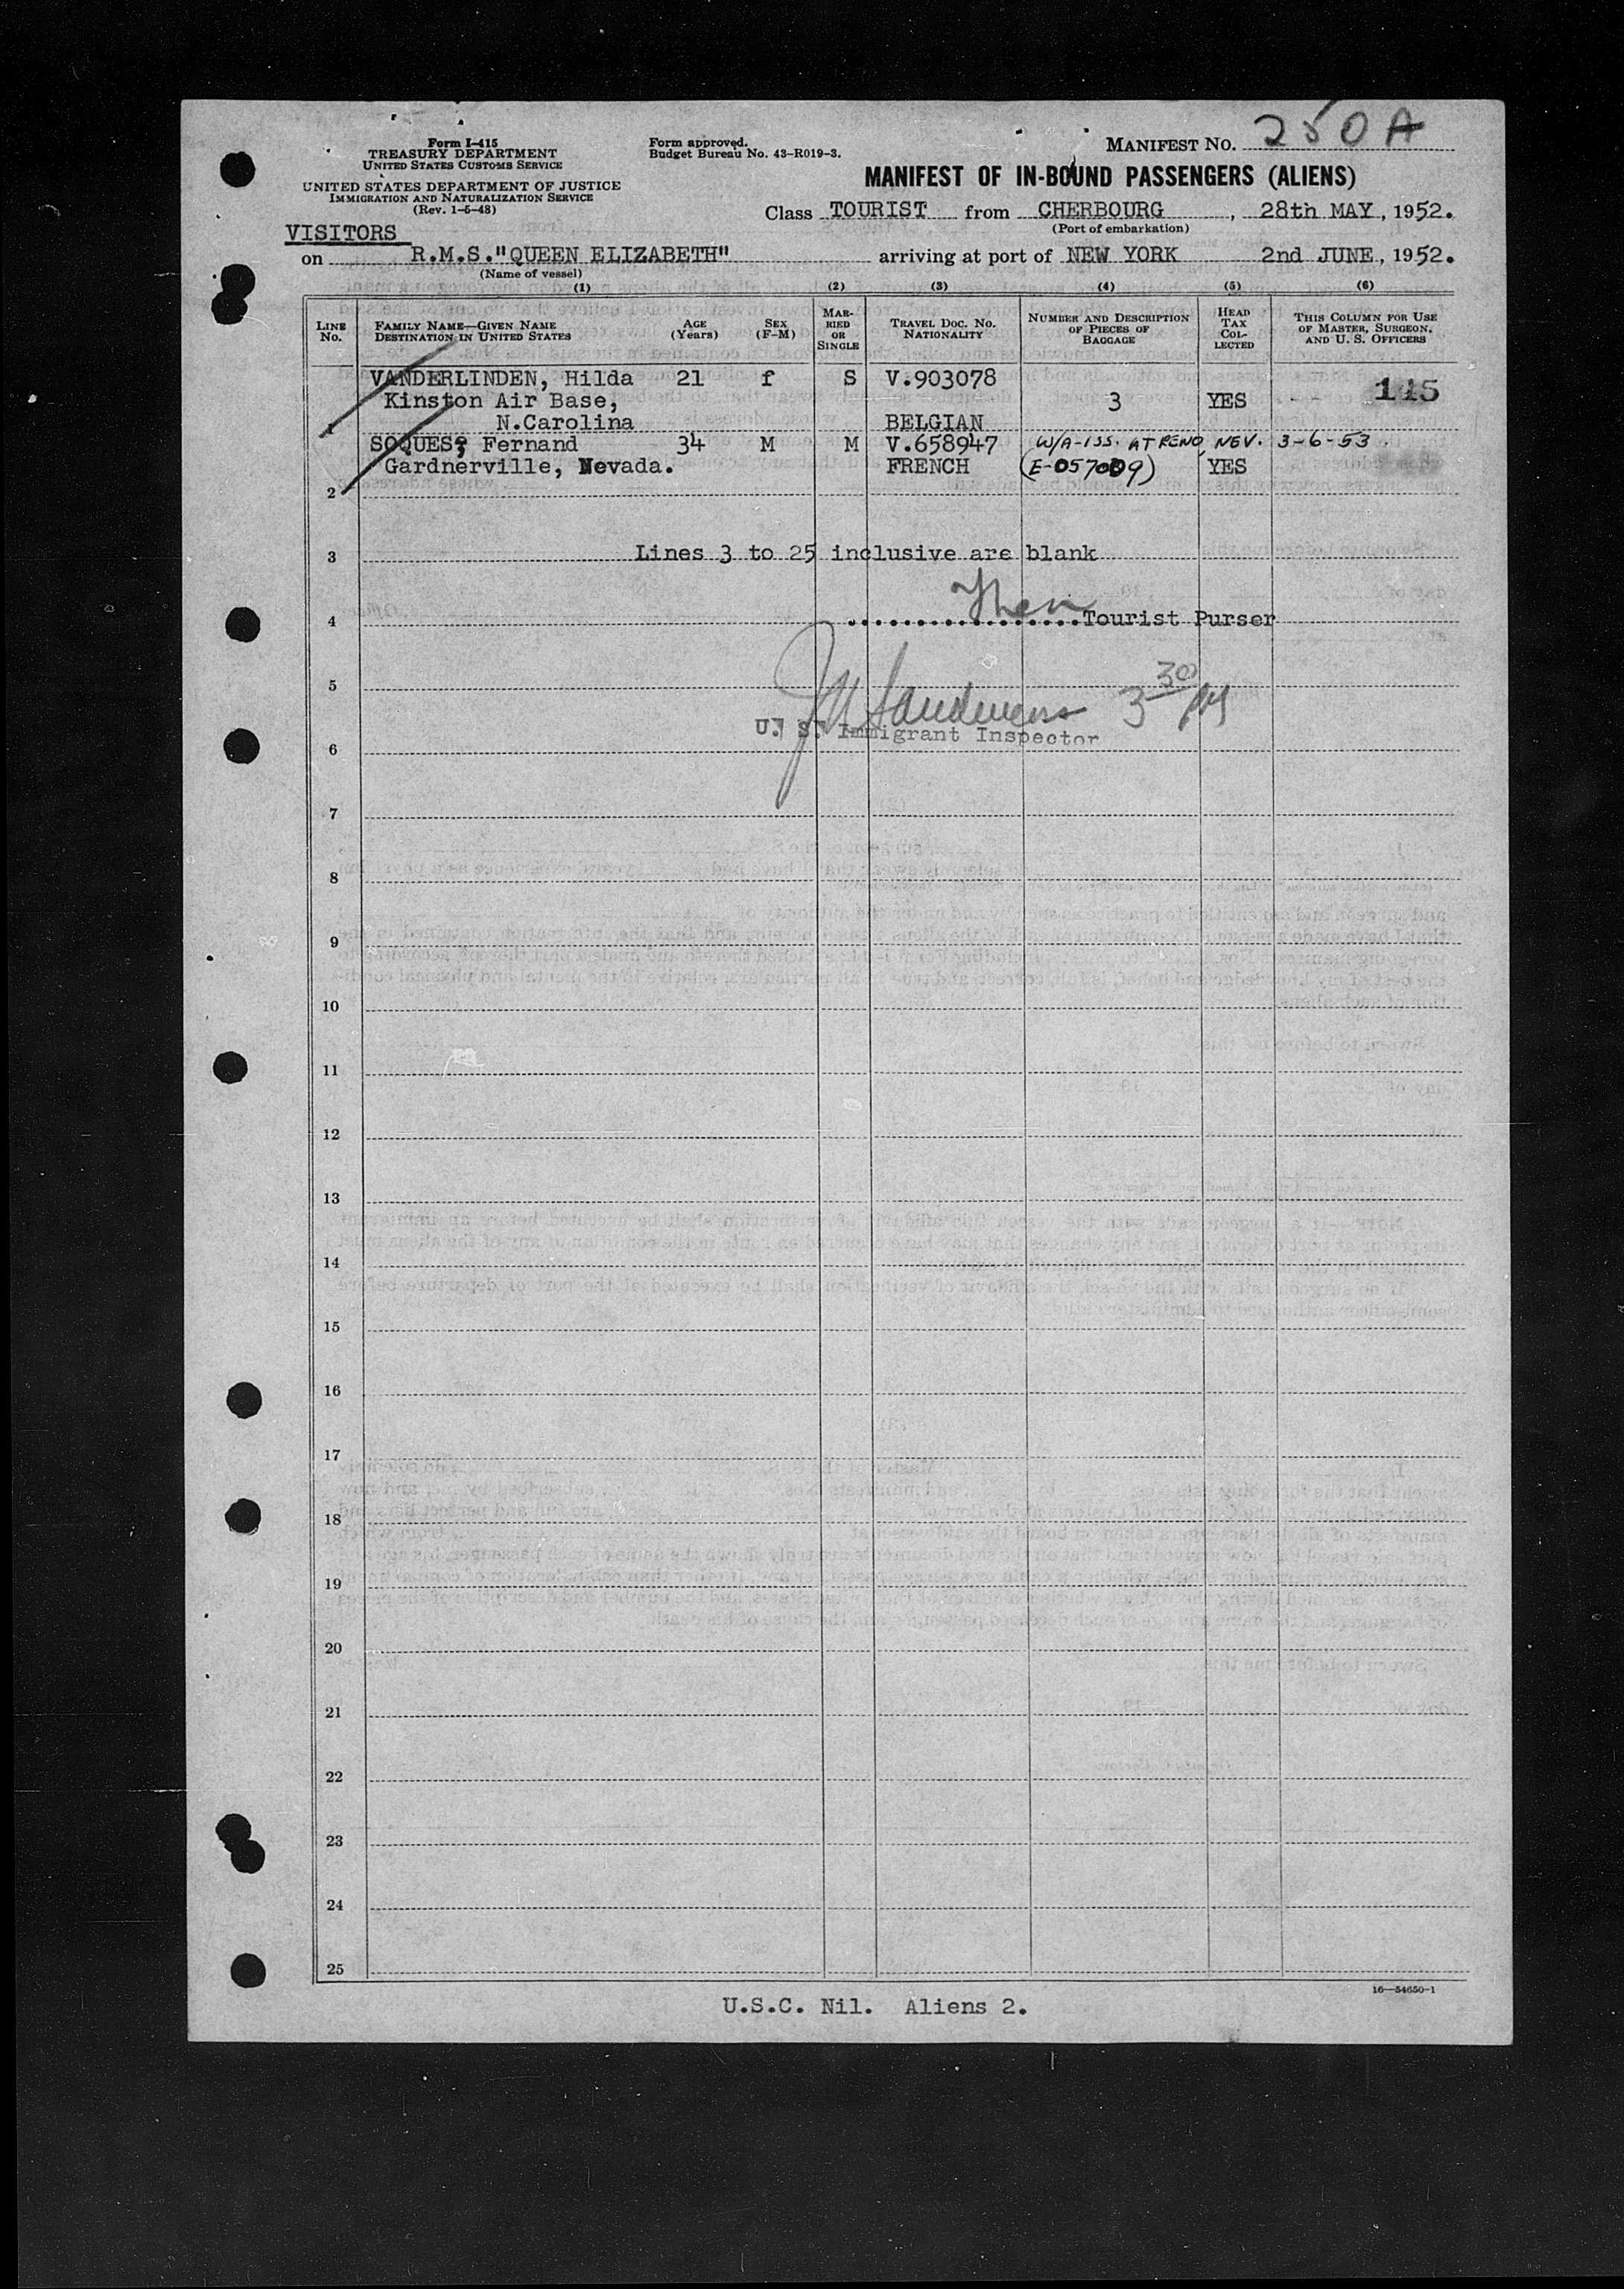 Form I-415
TREASURY DEPARTMENT
UNITED STATES CUSTOMS SERVICE
UNITED STATES DEPARTMENT OF JUSTICE
IMMIGRATION AND NATURALIZATION SERVICE
(Rev. 1-5-48)
Form approved.
Budget Bureau No. 43-R019-3.
MANIFEST NO. 250 A
MANIFEST OF IN-BOUND PASSENGERS (ALIENS)
Class TOURIST from CHERBOURG, 28th MAY, 1952.
(Port of embarkation)
VISITORS
on R.M.S."QUEEN ELIZABETH" arriving at port of NEW YORK 2nd JUNE, 1952.
(Name of vessel)
(1) (2) (3) (4) (5) (6)
LINE No.
FAMILY NAME—GIVEN NAME
DESTINATION IN UNITED STATES
AGE (Years)
SEX (F-M)
MARRIED OR SINGLE
TRAVEL DOC. NO. NATIONALITY
NUMBER AND DESCRIPTION OF PIECES OF BAGGAGE
HEAD TAX COLLECTED
THIS COLUMN FOR USE OF MASTER, SURGEON, AND U. S. OFFICERS
VANDERLINDEN, Hilda 21 f S V.903078
Kinston Air Base, 3 YES 115
1 N.Carolina BELGIAN
SOQUES, Fernand 34 M M V.658947 W/A-ISS. AT RENO, NEV. 3-6-53.
Gardnerville, Nevada. FRENCH (E-057009) YES
2
3 Lines 3 to 25 inclusive are blank
4 Tourist Purser
5 3 30 PM
U. S. Immigrant Inspector
6
7
8
9
10
11
12
13
14
15
16
17
18
19
20
21
22
23
24
25
16—54650-1
U.S.C. Nil. Aliens 2.